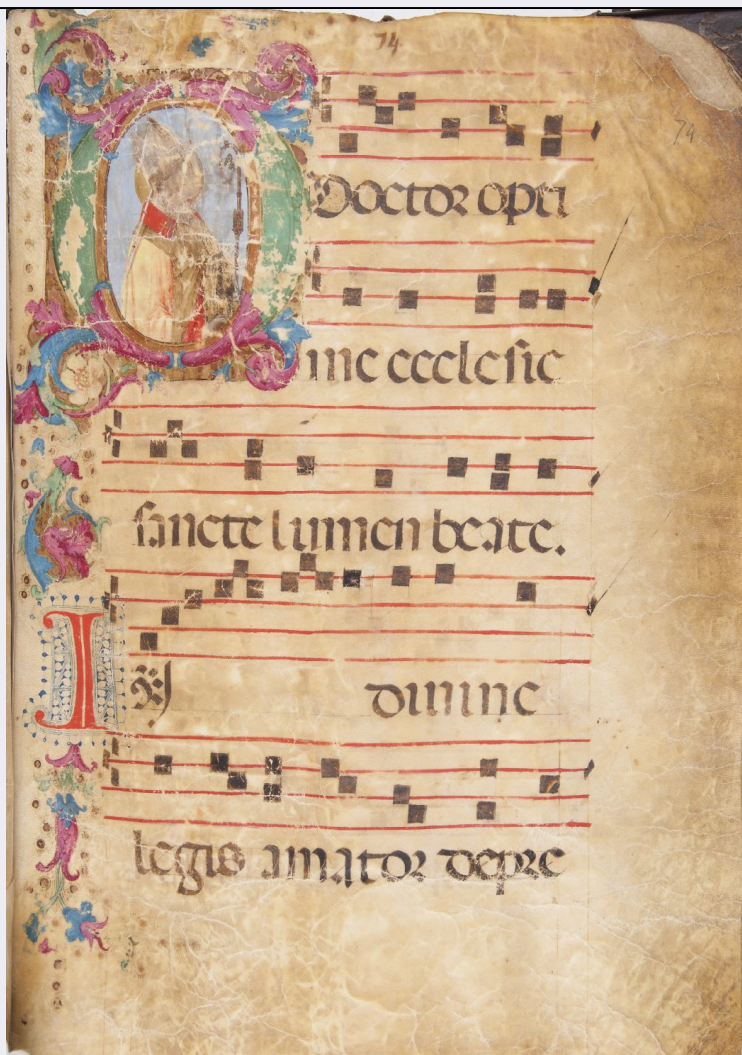 74
74
O Doctor opti
me ecclesie
sancte lumen beate.
I diuine
legis amator depre